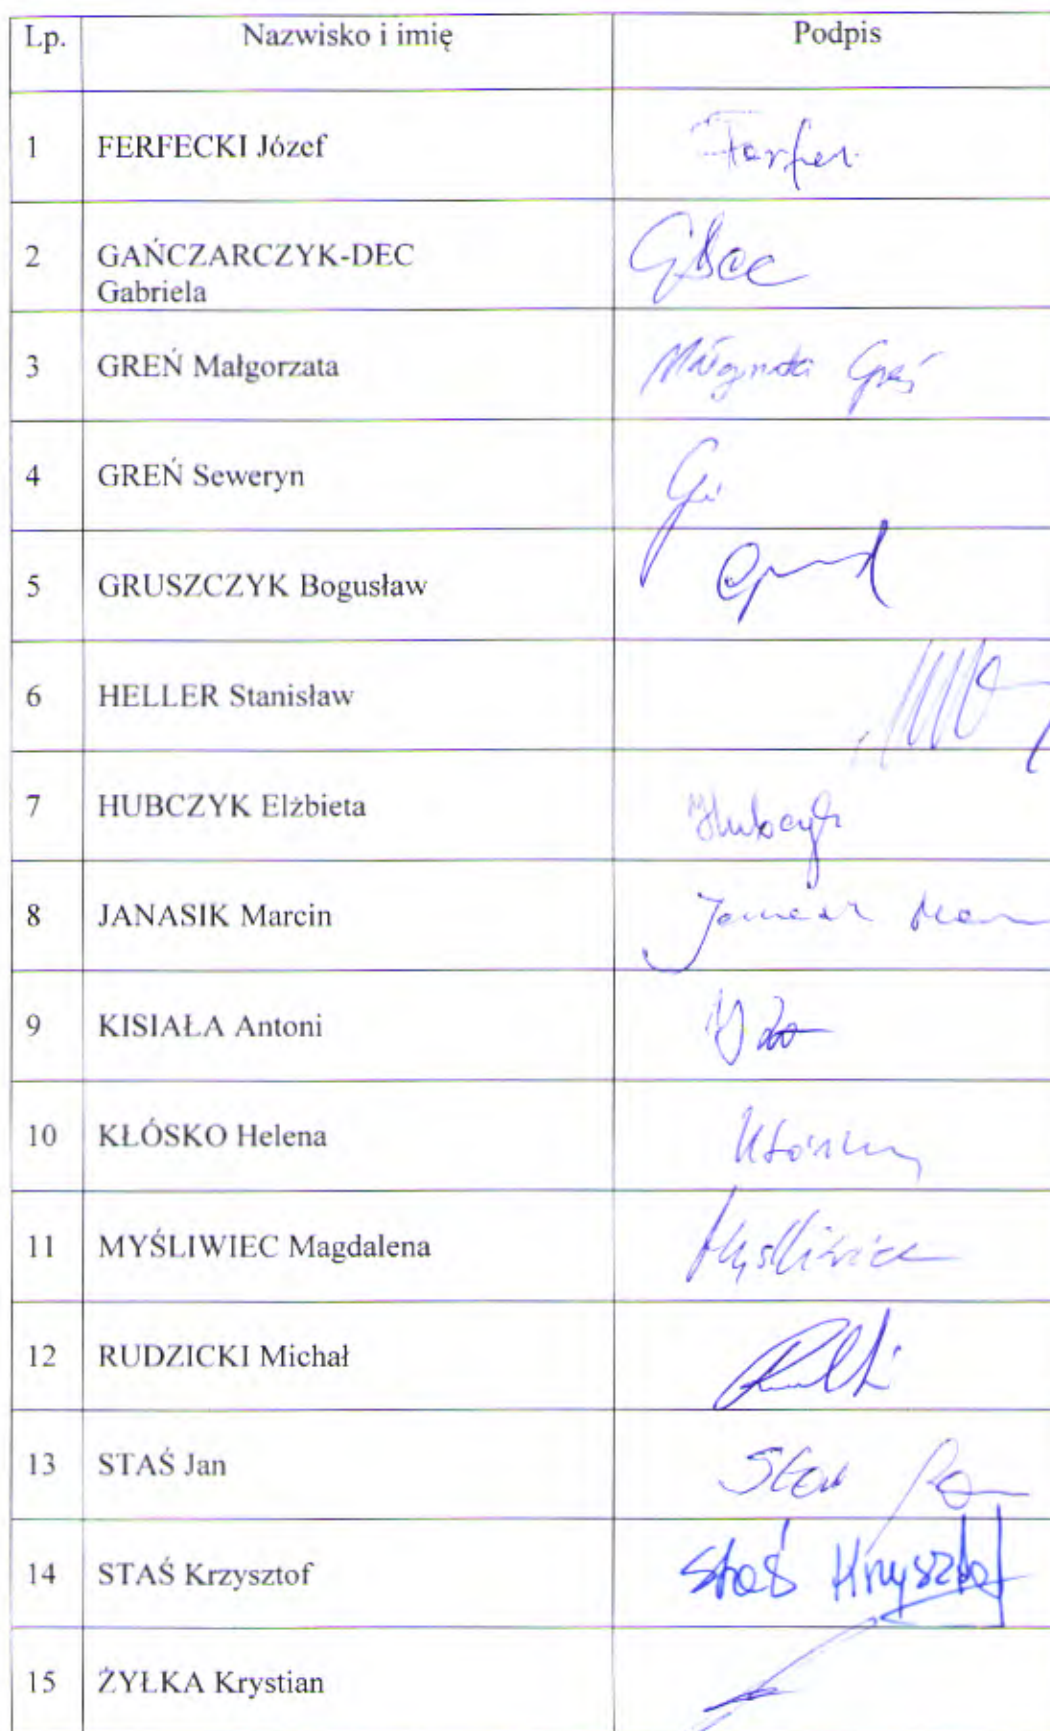 Lp. Nazwisko i imię Podpis
1 FERFECKI Józef
2 GAŃCZARCZYK-DEC
Gabriela
3 GREŃ Małgorzata Małgorzata Greń
4 GREŃ Seweryn
5 GRUSZCZYK Bogusław
6 HELLER Stanisław
7 HUBCZYK Elżbieta Hubczyk
8 JANASIK Marcin
9 KISIAŁA Antoni
10 KŁÓSKO Helena
11 MYŚLIWIEC Magdalena Myśliwiec
12 RUDZICKI Michał
13 STAŚ Jan
14 STAŚ Krzysztof Staś Krzysztof
15 ŻYŁKA Krystian